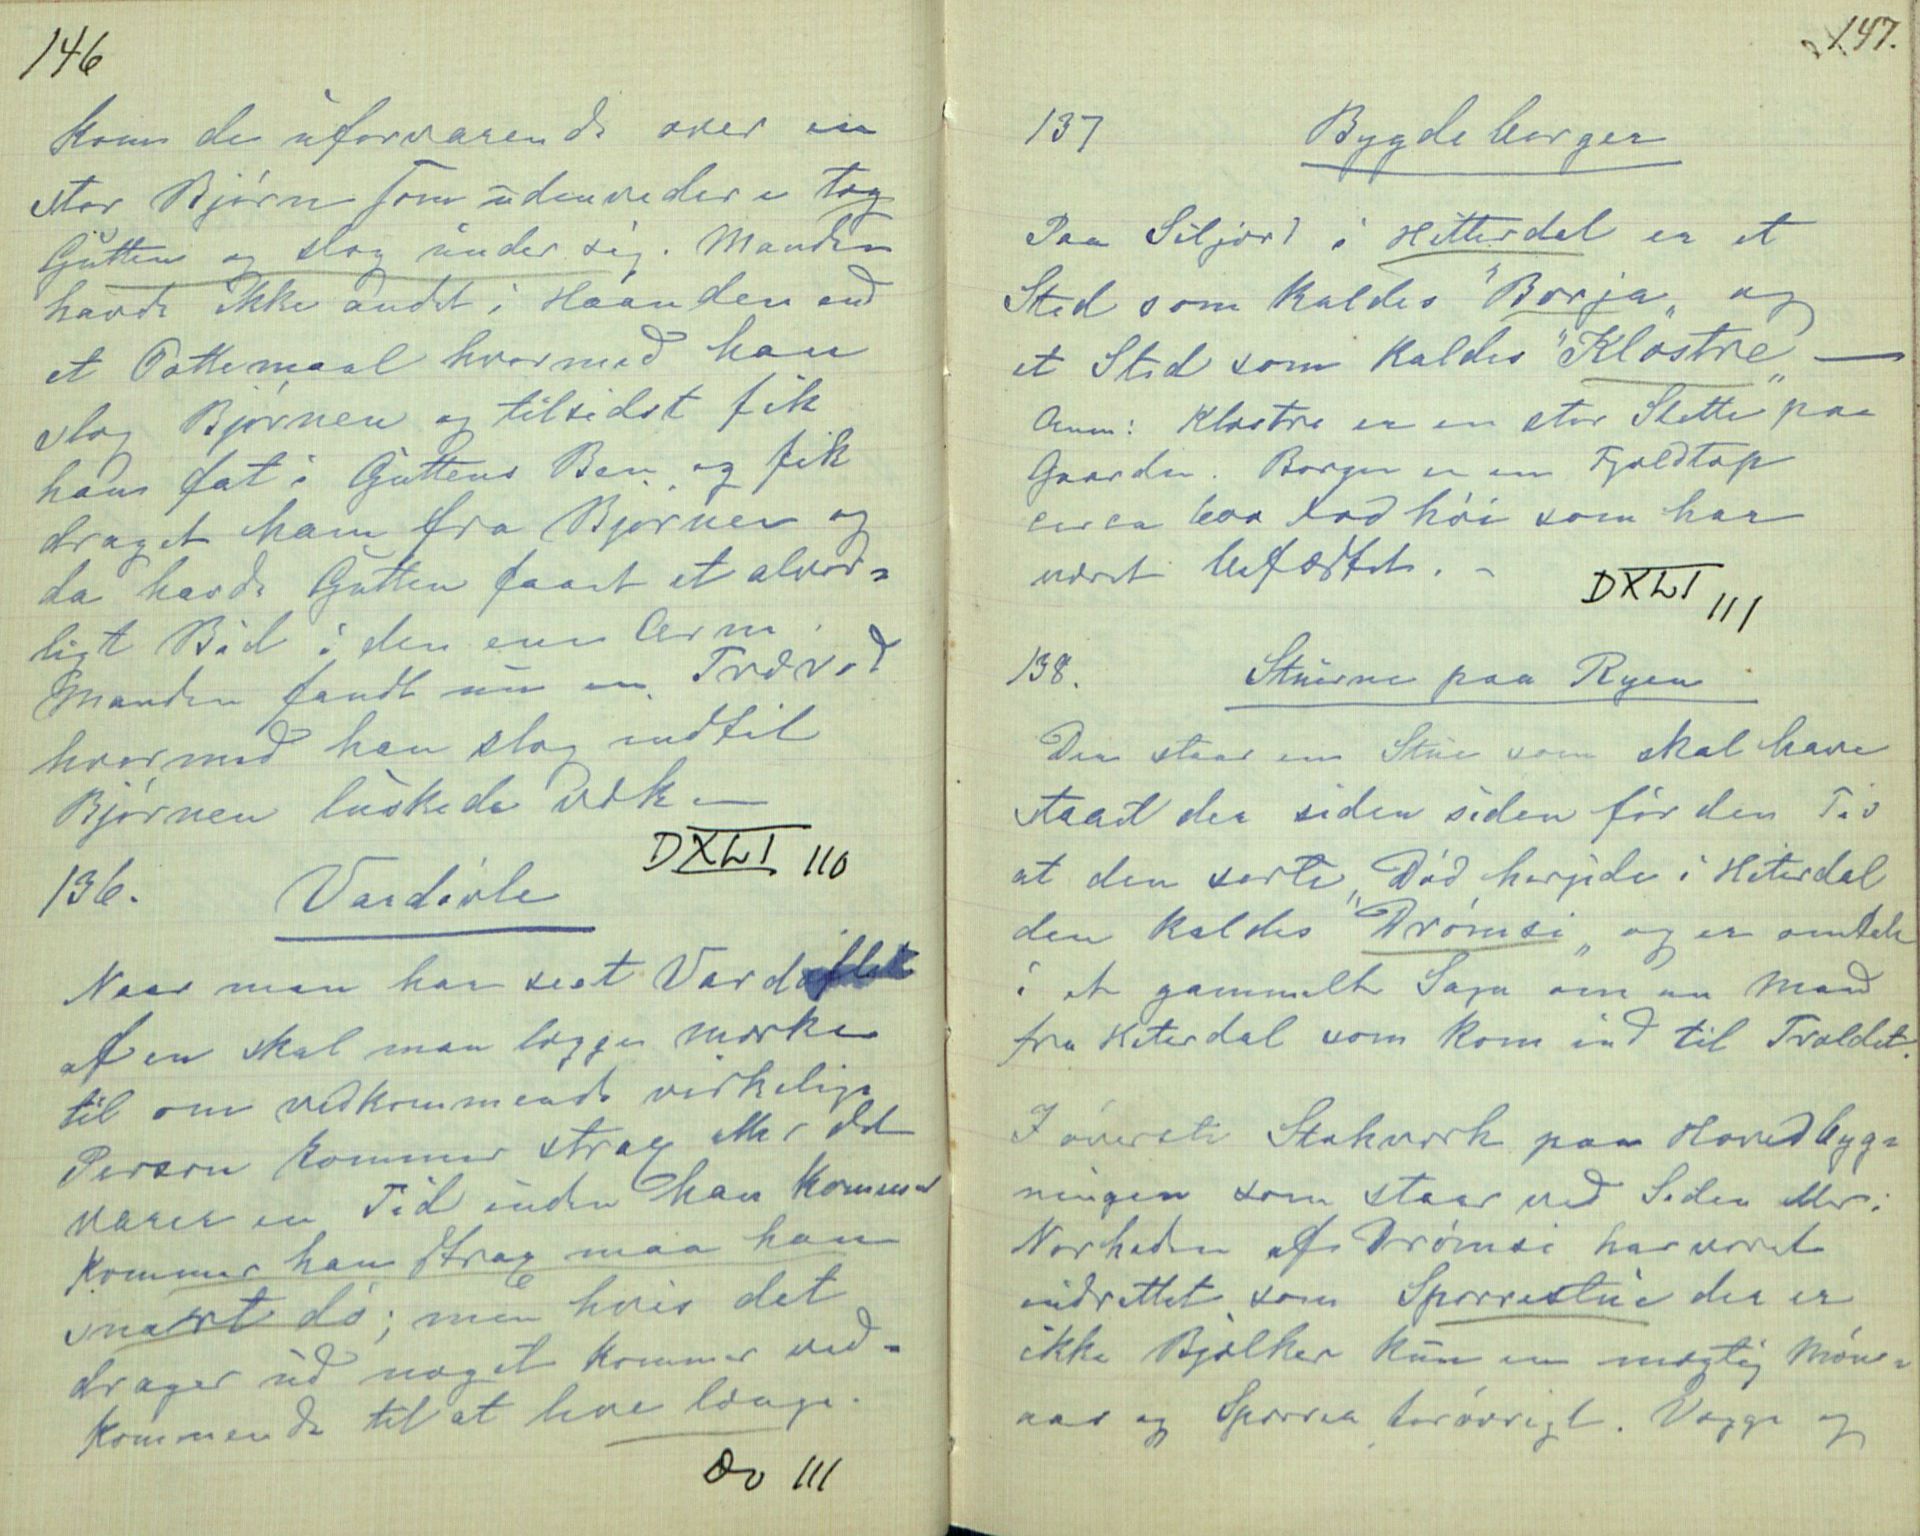 146
kom de uforvarende over en
stor Bjørn som udenvidere tog
Gutten og slog under sig. Manden
havde ikke andet i Haanden end
et Pottemaal hvormed han
slog Bjørnen og tilsidst fik
han fat i Guttens Ben og fik
draget ham fra Bjørnen og
da havde Gutten faaet et alvor-
ligt Bid i den ene Arm.
Manden fandt nu en Trævod
hvormed han slog indtil
Bjørnen luskede væk —
DXLI 110
136. Vardøvle
Naar man har seet Vardøflek
af en skal man lægge mærke
til om vedkommende virkelige
Person kommer strax eller det
varer en Tid inden han kommer
Kommer han strax maa han
snart dø; men hvis det
drager ud noget kommer ved-
kommende til at leve længe.
Do 111
147.
137 Bygdeborger
Paa Siljord i Hitterdal er et
Sted som kaldes "Borja" og
et Sted som kaldes "Klostre" —
Anm: Klostre er en stor Slette paa
Gaarden. Borgen er en Fjeldtop
circa 600 Fod høi som har
været befæstet. -
DXLI 111
138. Stuerne paa Ryen
Der staar en Stue som skal have
staaet der siden siden før den Tid
at den sorte Død herjede i Hiterdal
den kaldes "Drømsi" og er omtalt
i et gammelt Sagn om en Mand
fra Hiterdal som kom ind til Troldet.
I øverste Stokværk paa Hovedbyg-
ningen som staar ved Siden eller i
Nærheden af Drømsi har været
indrettet som Sperrestue der er
ikke Bjælker kun en mægtig Møns-
aas og Sperrer forøvrigt. Vægge og